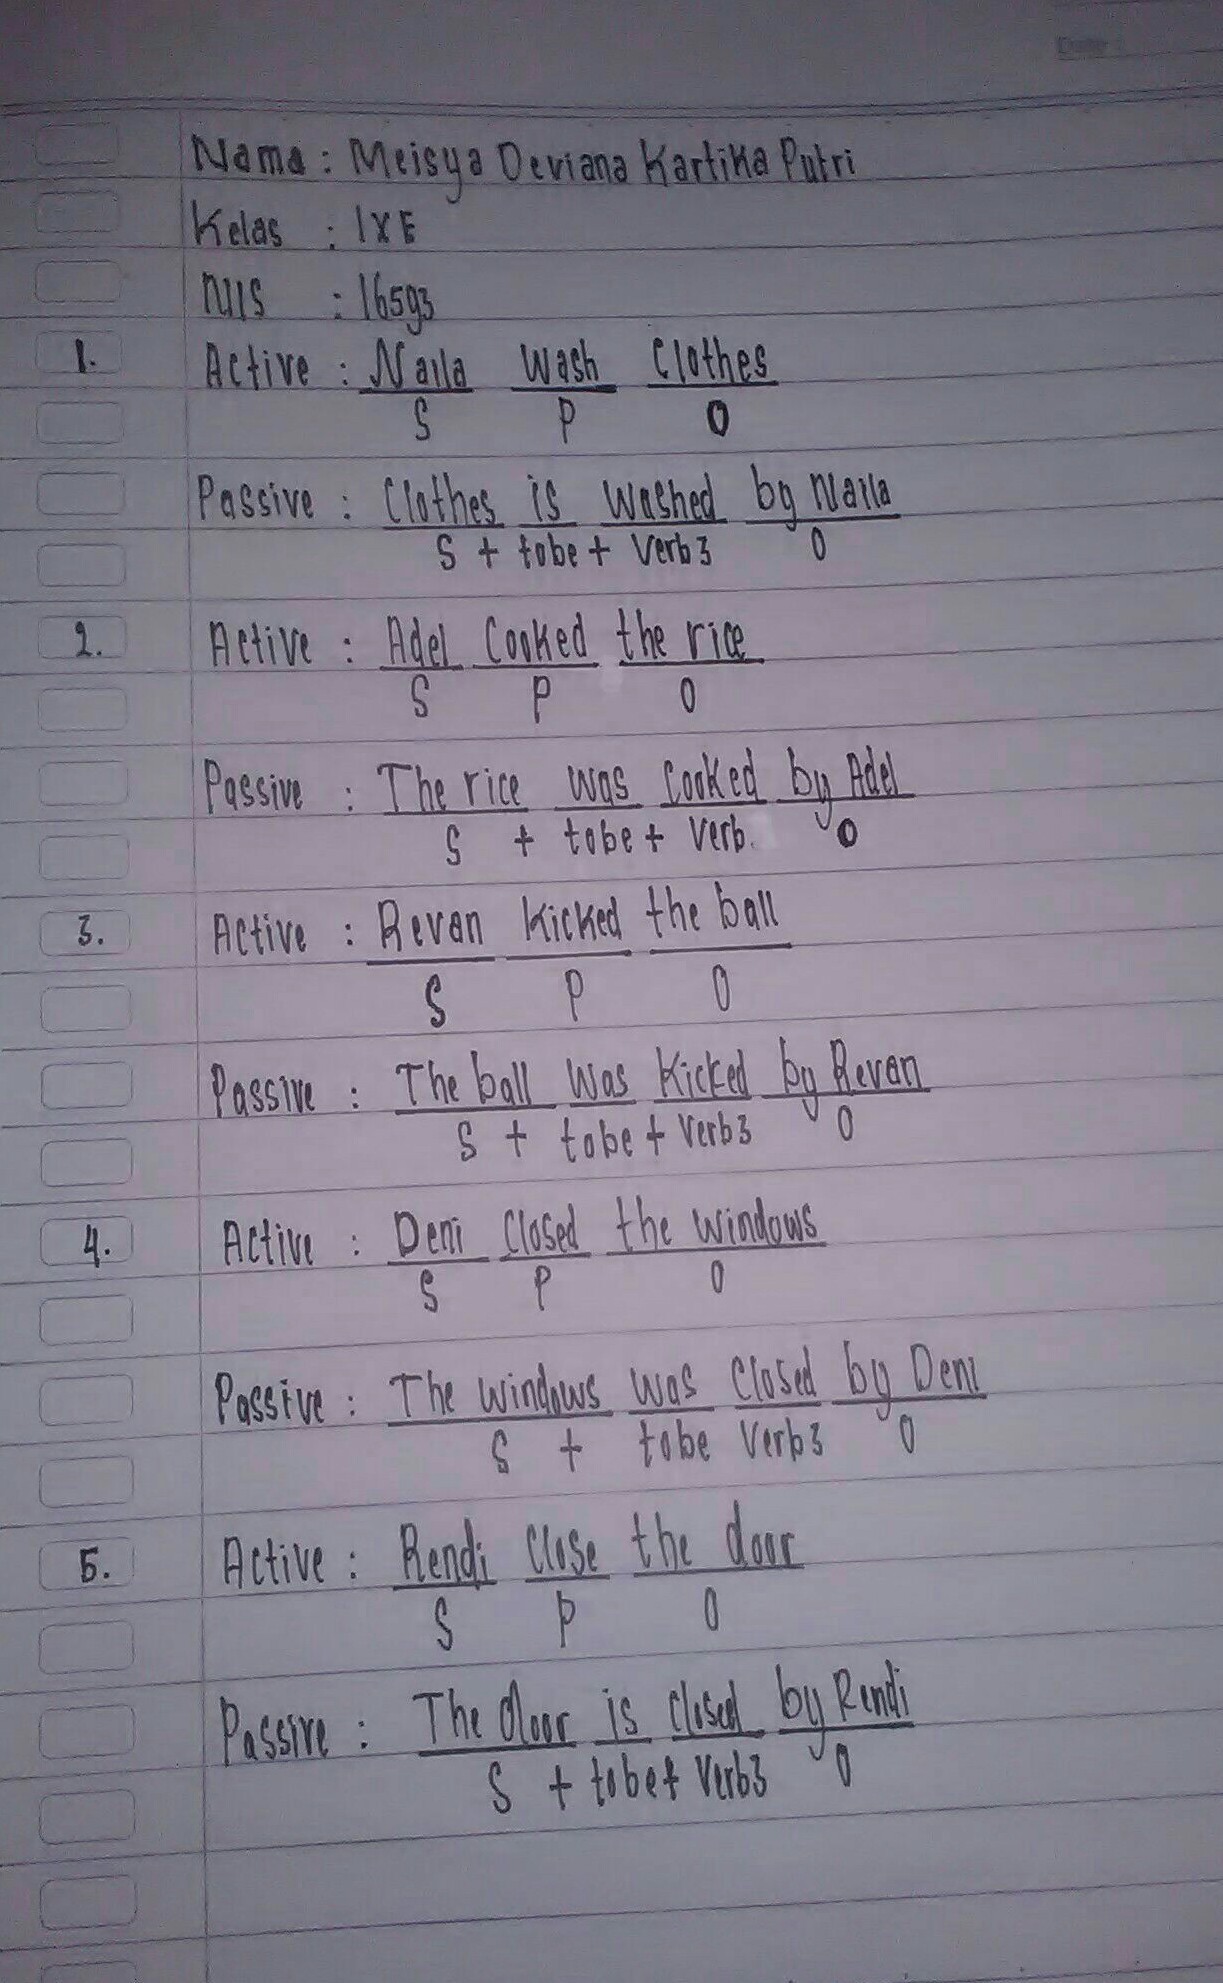 Nama : Meisya Deviana Kartika Putri
Kelas : IXE
NIS : 16593
1. Active : Naila Wash Clothes
S P O
Passive : Clothes is Washed by Naila
S + tobe + Verb3 O
2. Active : Adel Cooked the rice
S P O
Passive : The rice was Cooked by Adel
S + tobe + Verb. O
3. Active : Revan Kicked the ball
S P O
Passive : The ball Was Kicked by Revan
S + tobe + Verb3 O
4. Active : Deni Closed the windows
S P O
Passive : The windows was Closed by Deni
S + tobe Verb3 O
5. Active : Rendi Close the door
S P O
Passive : The door is closed by Rendi
S + tobe + Verb3 O